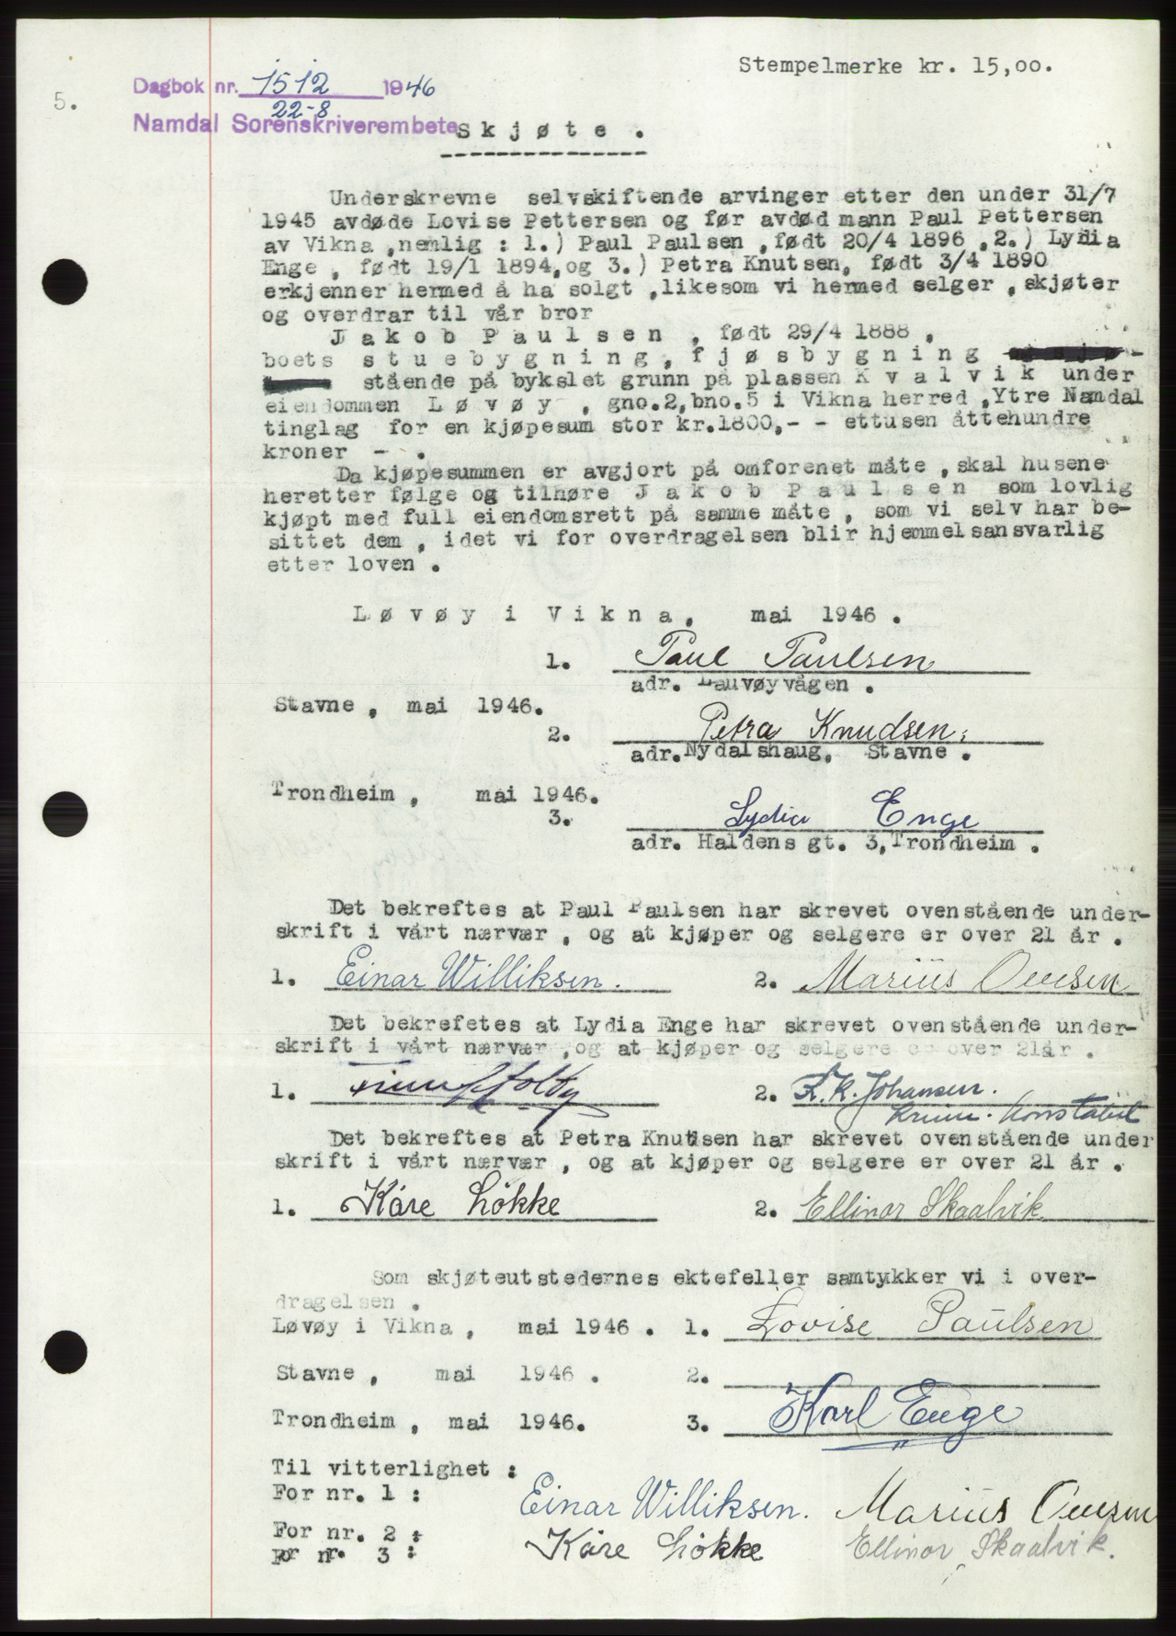 Stempelmerke kr. 15,00.
5.
Dagbok nr. 1512 1946
22-8
Namdal Sorenskriverembete
S k j ø t e .
Underskrevne selvskiftende arvinger etter den under 31/7
1945 avdøde Lovise Pettersen og før avdød mann Paul Pettersen
av Vikna ,nemlig : 1.) Paul Paulsen ,født 20/4 1896 ,2.) Lydia
Enge , født 19/1 1894,og 3.) Petra Knutsen, født 3/4 1890
erkjenner hermed å ha solgt ,likesom vi hermed selger , skjøter
og overdrar til vår bror
J a k o b P a u l s e n , født 29/4 1888 ,
boets s t u e b y g n i n g , f j ø s b y g n i n g
stående på bykslet grunn på plassen K v a l v i k under
eiendommen L ø v ø y , gno.2,bno.5 i Vikna herred ,Ytre Namdal
tinglag for en kjøpesum stor kr.1800,- - ettusen åttehundre
kroner - .
Da kjøpesummen er avgjort på omforenet måte , skal husene
heretter følge og tilhøre J a k o b P a u l s e n som lovlig
kjøpt med full eiendomsrett på samme måte , som vi selv har be-
sittet dem , idet vi for overdragelsen blir hjemmelsansvarlig
etter loven .
L ø v ø y i V i k n a , mai 1946 .
1. Paul Paulsen
adr. Lauvøyvågen .
Stavne , mai 1946.
2. Petra Knudsen.
adr.Nydalshaug, Stavne .
Trondheim , mai 1946.
3. Lydia Enge
adr. Haldens gt. 3,Trondheim .
Det bekreftes at Paul Paulsen har skrevet ovenstående under-
skrift i vårt nærvær , og at kjøper og selgere er over 21 år .
1. Einar Williksen. 2. Marius Ovesen
Det bekrefetes at Lydia Enge har skrevet ovenstående under-
skrift i vårt nærvær ,og at kjøper og selgere er over 21år .
1. 2. K. Johansen.
Krim. konstabel
Det bekreftes at Petra Knutsen har skrevet ovenstående under
skrift i vårt nærvær , og at kjøper og selgere er over 21 år .
1. Kåre Løkke 2. Ellinor Skaalvik.
Som skjøteutstedernes ektefeller samtykker vi i over-
dragelsen .
Løvøy i Vikna , mai 1946 . 1. Lovise Paulsen
Stavne , mai 1946 . 2.
Trondheim , mai 1946. 3. Karl Enge
Til vitterlighet :
For nr. 1 : Einar Williksen. Marius Ovesen
For nr. 2 : Kåre Løkke Ellinor Skaalvik.
For nr. 3 :